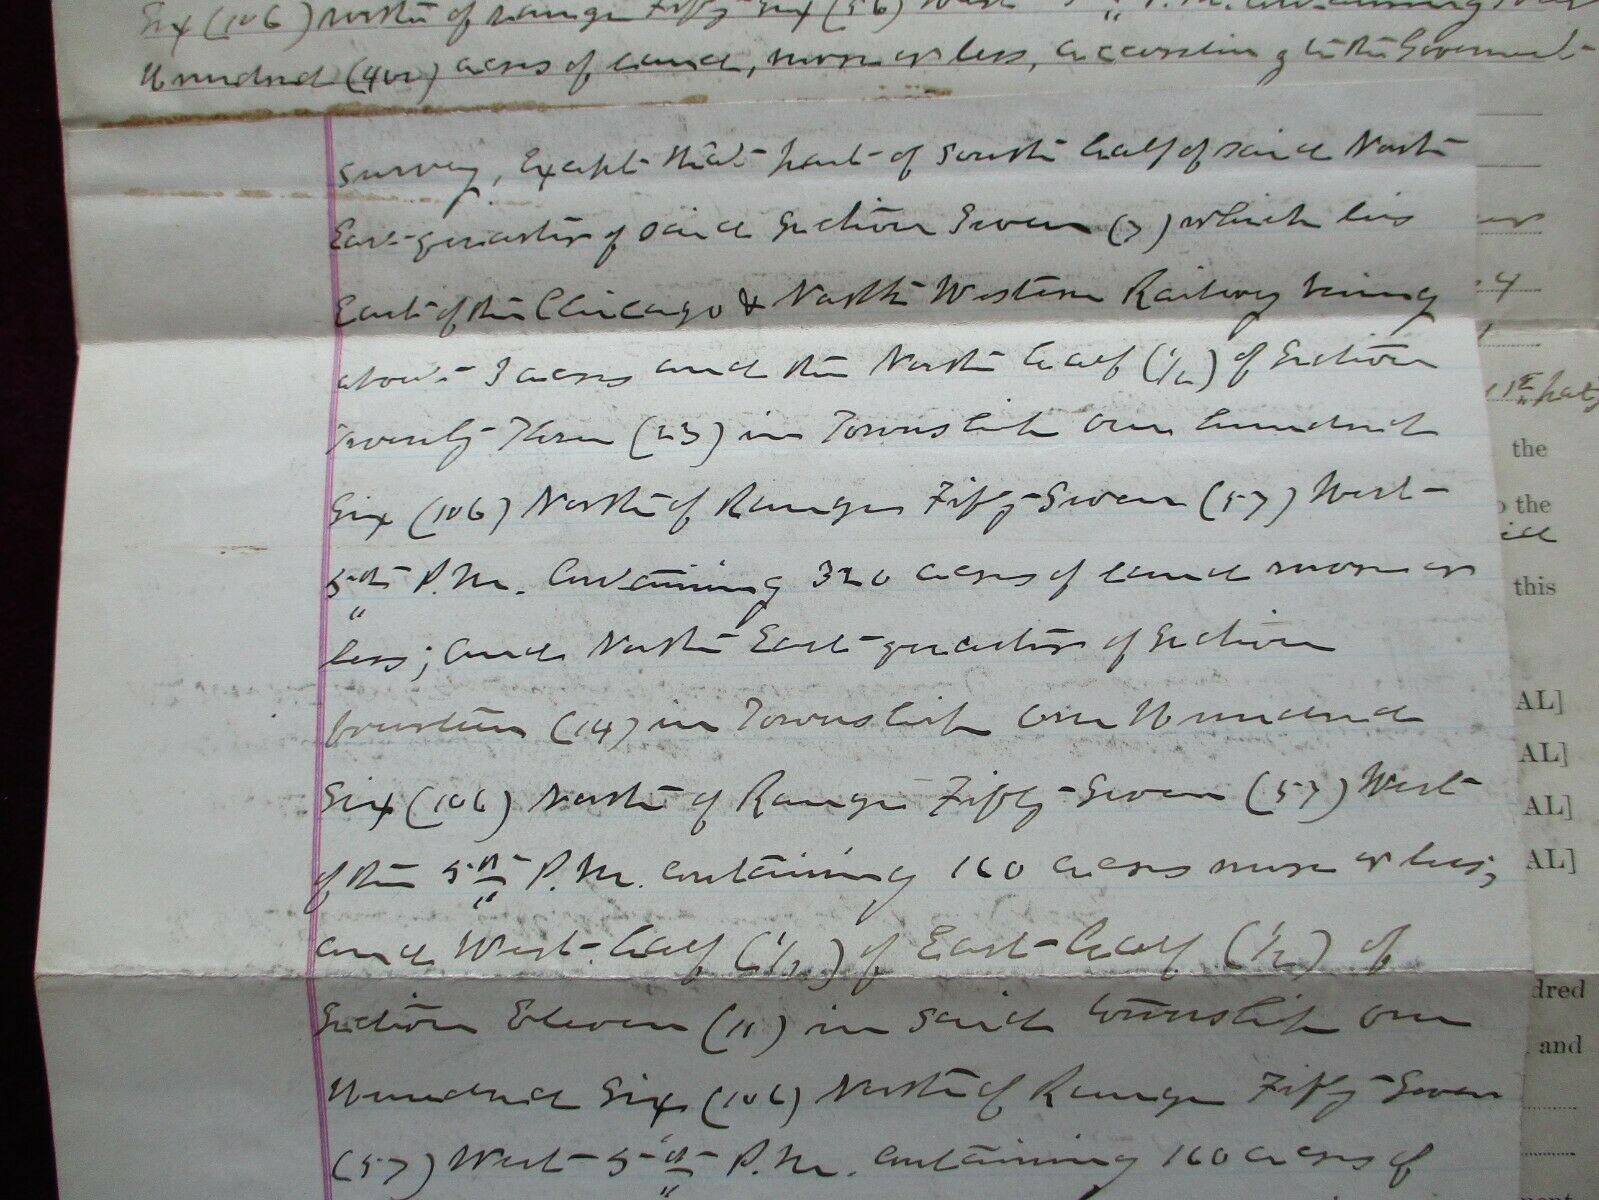 Six (106) North of Range Fifty Six (56) West P.M. Containing
Hundred (400) acres of land, more or less, according to the Government
survey, Except that part of South half of said North
East quarter of said Section Seven (7) which lies
East of the Chicago & North Western Railway being
about 3 acres and the North half (1/2) of Section
Twenty Three (23) in Township One hundred
Six (106) North of Range Fifty Seven (57) West
5th P.M. Containing 320 acres of land more or
less; and North East quarter of Section
fourteen (14) in Township One Hundred
Six (106) North of Range Fifty-Seven (57) West
of the 5th P.M. containing 160 acres more or less;
and West half (1/2) of East half (1/2) of
Section Eleven (11) in said township One
Hundred Six (106) North of Range Fifty-Seven
(57) West 5th P.M. containing 160 acres of
4
1st party
the
the
this
AL]
AL]
AL]
AL]
dred
and